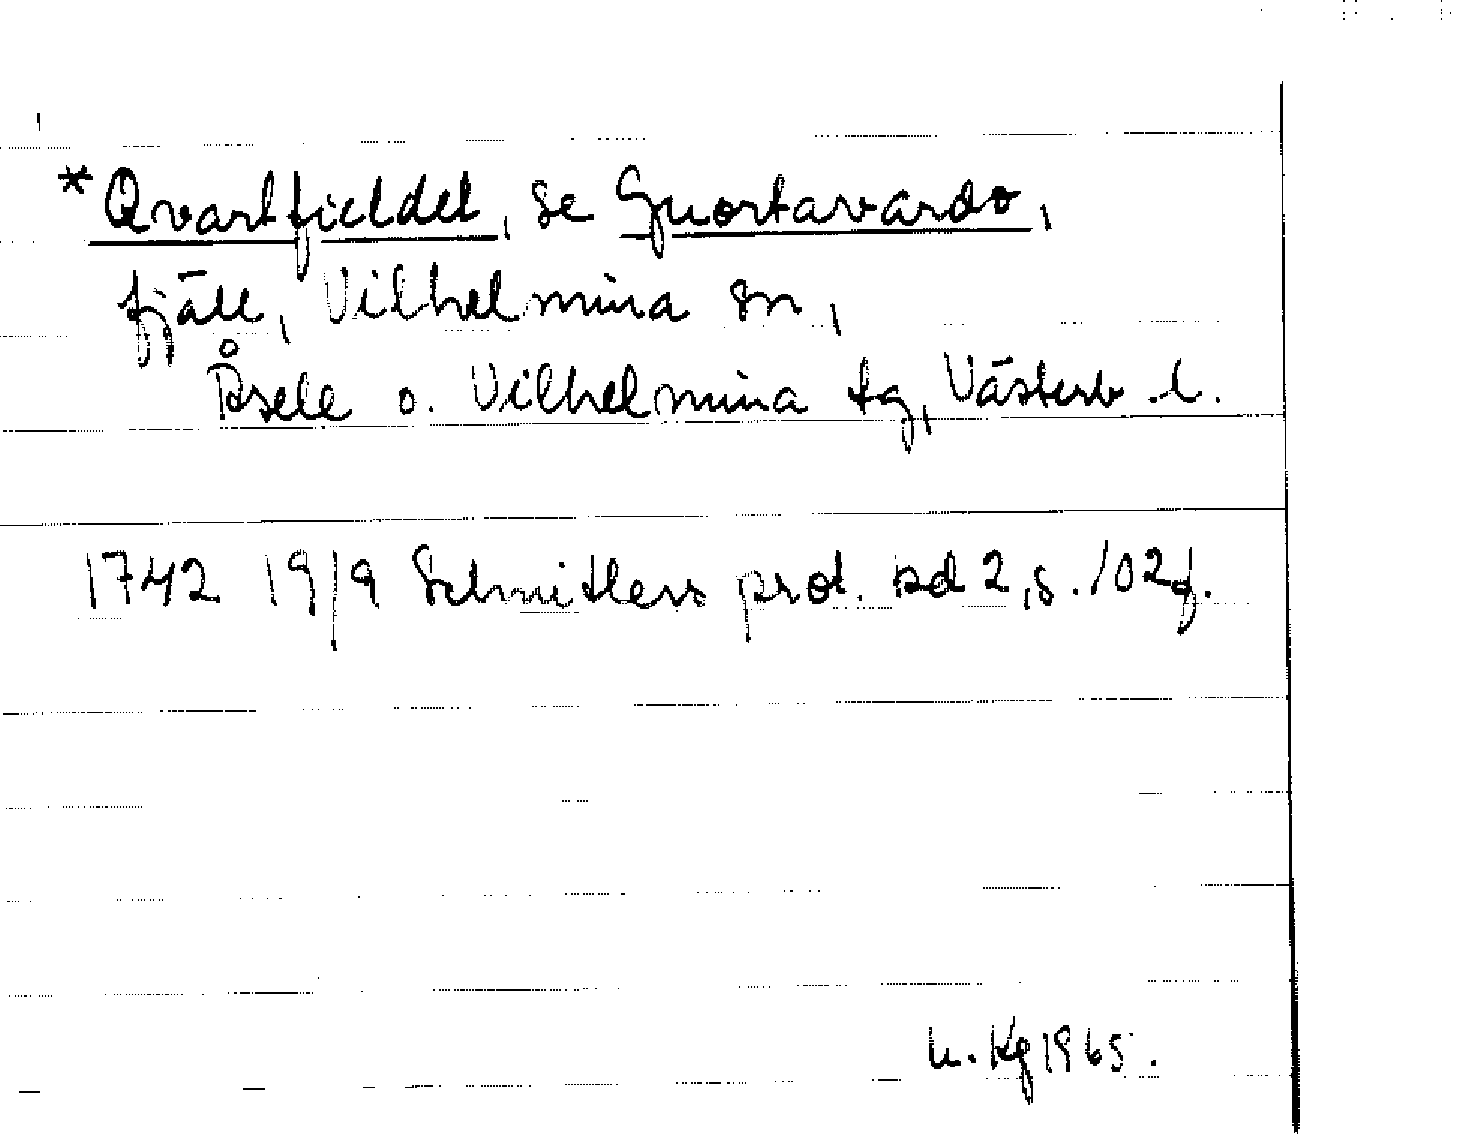 *Qvartfjeldet, se Guortavardo,
fjäll, Vilhelmina sn,
Åsele o. Vilhelmina tg, Västerb. l.
1742 19/9 Schnitlers prot. bd 2, s. 102f.
U. Kg 1965.